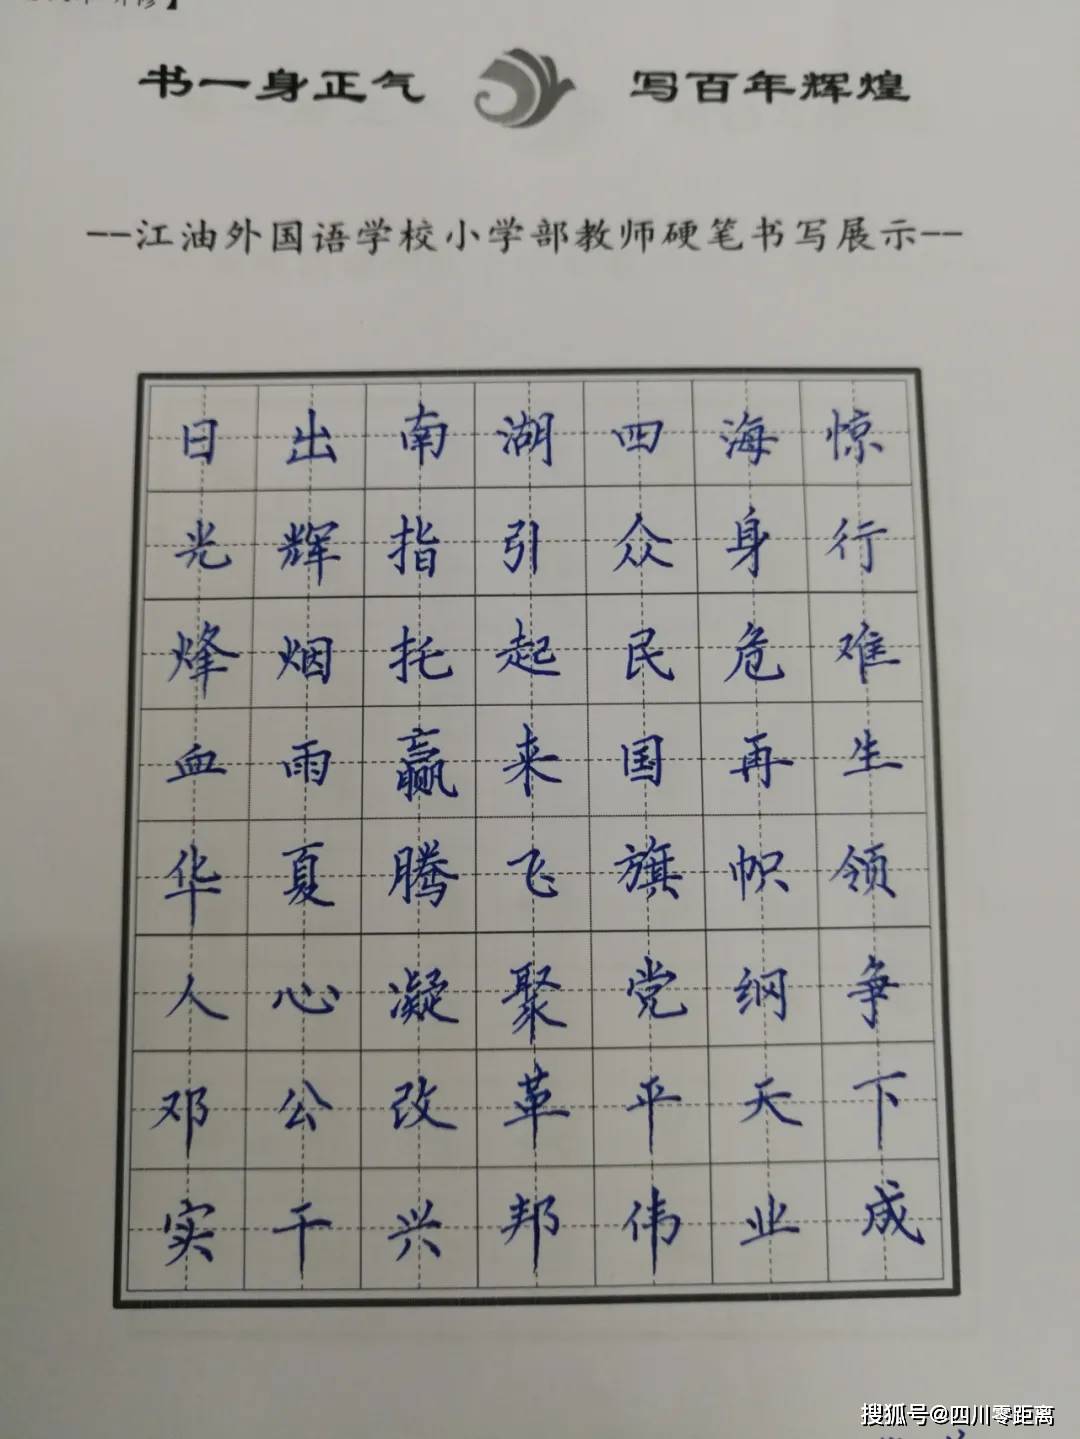 书一身正气 写百年辉煌
--江油外国语学校小学部教师硬笔书写展示--
日出南湖四海惊
光辉指引众身行
烽烟托起民危难
血雨赢来国再生
华夏腾飞旗帜领
人心凝聚党纲争
邓公改革平天下
实干兴邦伟业成
搜狐号@四川零距离